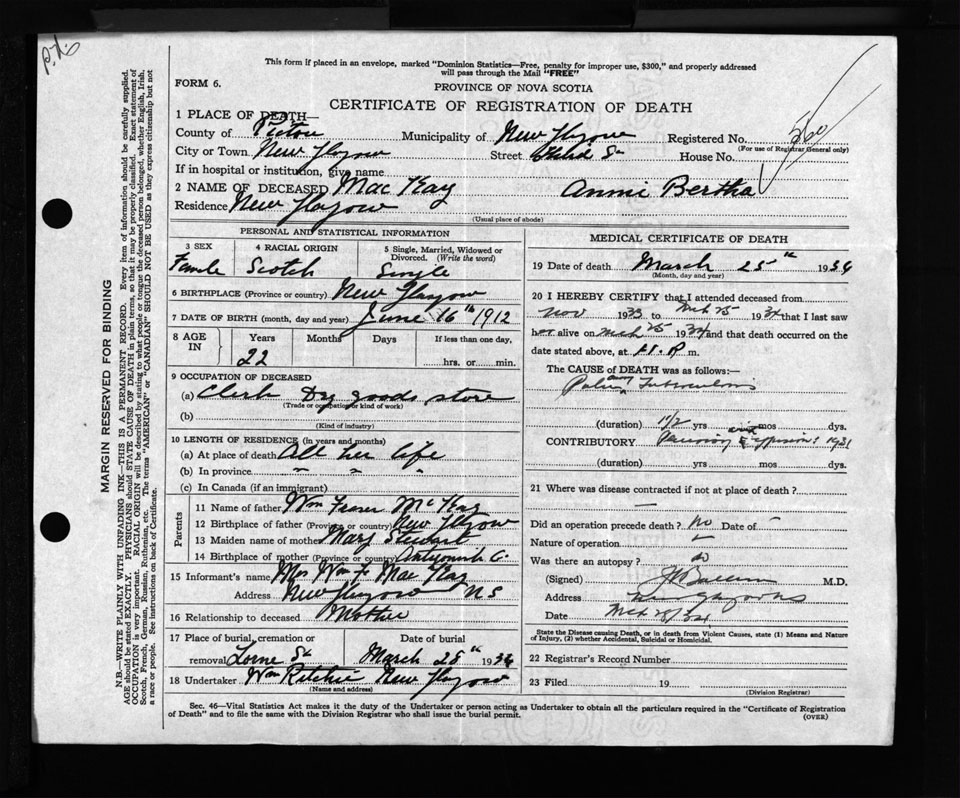 This form if placed in an envelope, marked "Dominion Statistics—Free, penalty for improper use, $300," and properly addressed
will pass through the Mail "FREE"
FORM 6.
PROVINCE OF NOVA SCOTIA
CERTIFICATE OF REGISTRATION OF DEATH
560
1 PLACE OF DEATH—
County of Pictou Municipality of New Glasgow Registered No.
(For use of Registrar General only)
City or Town New Glasgow Street House No.
If in hospital or institution, give name
2 NAME OF DECEASED MacKay Annie Bertha
Residence New Glasgow
(Usual place of abode)
PERSONAL AND STATISTICAL INFORMATION
3 SEX 4 RACIAL ORIGIN 5 Single, Married, Widowed or Divorced. (Write the word)
Female Scotch Single
6 BIRTHPLACE (Province or country) New Glasgow
7 DATE OF BIRTH (month, day and year) June 16th 1912
8 AGE IN Years Months Days If less than one day,
22 hrs. or min.
9 OCCUPATION OF DECEASED
(a) Clerk Dry goods store
(Trade or occupation or kind of work)
(b)
(Kind of industry)
10 LENGTH OF RESIDENCE (in years and months)
(a) At place of death All her life
(b) In province " " "
(c) In Canada (if an immigrant)
Parents
11 Name of father Wm Fraser McKay
12 Birthplace of father (Province or country) New Glasgow
13 Maiden name of mother Mary Stewart
14 Birthplace of mother (Province or country) Antigonish C.
15 Informant's name Mrs Wm F MacKay
Address New Glasgow NS
16 Relationship to deceased Mother
17 Place of burial, cremation or Date of burial
removal Lorne St March 28th 1934
18 Undertaker Wm Ritchie New Glasgow
(Name and address)
MEDICAL CERTIFICATE OF DEATH
19 Date of death March 25th 1934
(Month, day and year)
20 I HEREBY CERTIFY that I attended deceased from
Nov 1933 to Mch 25 1934 that I last saw
her alive on Mch 25 1934 and that death occurred on the
date stated above, at 11 P. m.
The CAUSE of DEATH was as follows:—
Pulmonary Tuberculosis
(duration) 1 1/2 yrs mos dys.
CONTRIBUTORY 1931
(duration) yrs mos dys.
21 Where was disease contracted if not at place of death?
—
Did an operation precede death? No Date of –
Nature of operation
Was there an autopsy? no
(Signed) M.D.
Address New Glasgow NS
Date Mch 28/34
State the Disease causing Death, or in death from Violent Causes, state (1) Means and Nature
of Injury, (2) whether Accidental, Suicidal or Homicidal.
22 Registrar's Record Number
23 Filed 19
(Division Registrar)
Sec. 46—Vital Statistics Act makes it the duty of the Undertaker or person acting as Undertaker to obtain all the particulars required in the "Certificate of Registration
of Death" and to file the same with the Division Registrar who shall issue the burial permit.
(OVER)
MARGIN RESERVED FOR BINDING
N.B.—WRITE PLAINLY WITH UNFADING INK—THIS IS A PERMANENT RECORD. Every item of information should be carefully supplied.
AGE should be stated EXACTLY. PHYSICIANS should STATE CAUSE OF DEATH in plain terms, so that it may be properly classified. Exact statement of
OCCUPATION is very important. RACIAL ORIGIN will be described by stating to what people or tongue the deceased person belonged, whether English, Irish,
Scotch, French, German, Russian, Ruthenian, etc. The terms "AMERICAN" or "CANADIAN" SHOULD NOT BE USED as they express citizenship but not
a race or people. See instructions on back of Certificate.